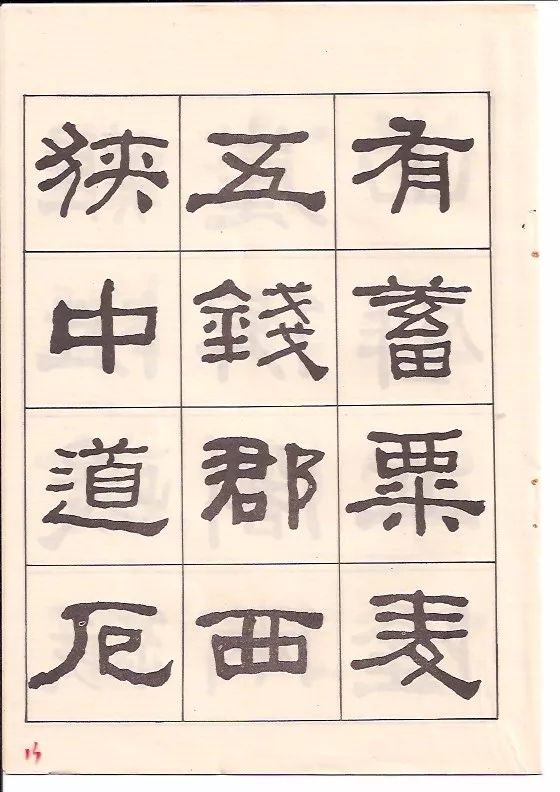 有蓄粟麦
五錢郡西
狭中道厄